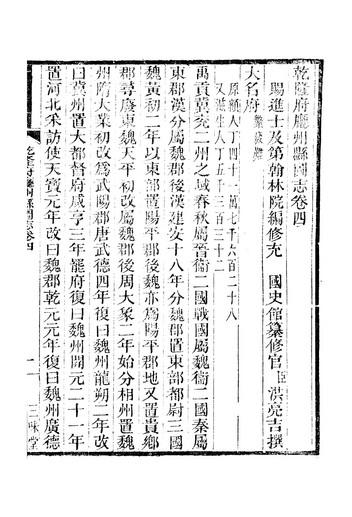 乾隆府廳州縣圖志卷四
賜進士及第翰林院編修充 國史館纂修官臣洪亮吉撰
大名府
原額人丁四十一萬七千六百二十八
又滋生人丁五千三百三十二
禹貢冀兖二州之域春秋屬晉衞二國戰國屬魏衞二國秦屬
東郡漢分屬魏郡後漢建安十八年分魏郡置東部都尉三國
魏黃初二年以東部置陽平郡後魏亦爲陽平郡地又置貴鄉
郡尋廢東魏天平初改屬魏郡後周大象二年始分相州置魏
州隋大業初改爲武陽郡唐武德四年復曰魏州龍朔二年改
曰冀州置大都督府咸亨三年罷府復曰魏州開元二十一年
置河北采訪使天寶元年改曰魏郡乾元元年復曰魏州廣德
乾隆府廳州縣圖志卷四
一
三味堂